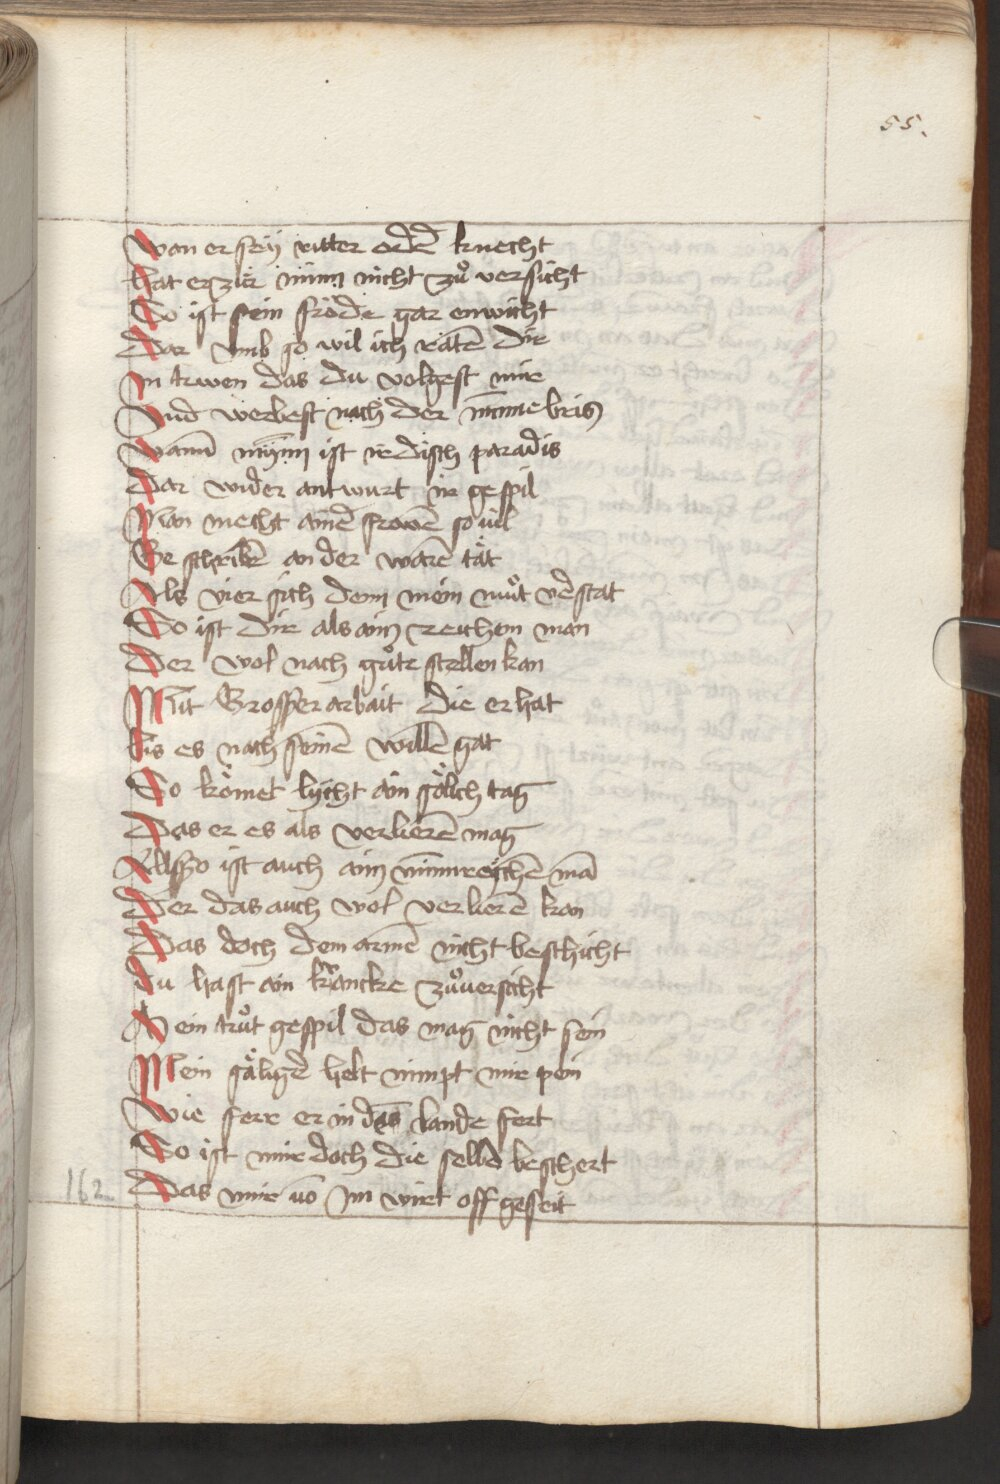 55.
Won er seÿ ritter oder knecht
Hat er zuͦ minn nicht zuͦ versicht
So ist sein fröde gar enwicht
Dar vmb so wil ich ratē dir
In trwen das du volgest mir
Vnd werbest nach der minne bris
Wann minn ist irdisch paradis
Dar wider antwurt ir gespil
Man mecht ainē frowē so vil
Be schribē an der warē tät
Als vier sich denn mein muͦt v̄stat
So ist dir als ain reichem man
Der wol nach guͦte stellen kan
Mit Grosser arbait die er hat
Bis es nach seinē willē gat
So kömet lÿcht ain sölich tag
Das er es als verlierē mag
Allso ist auch ain minnreichē mā
Der das auch wol verlierē kan
Das doch dem armē nicht beschicht
Du hast ain krancke zuͦuersicht
Mein truͦt gespil das mag nicht sein
Mein säligē helt nimpt mir pein
Wie ferr er in das lande fert
So ist mir doch die selbe beschert
Das mir vō im wirt off geseit
162